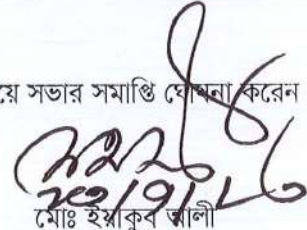 য়ে সভার সমাপ্তি ঘোষনা করেন
মোঃ ইয়াকুব আলী